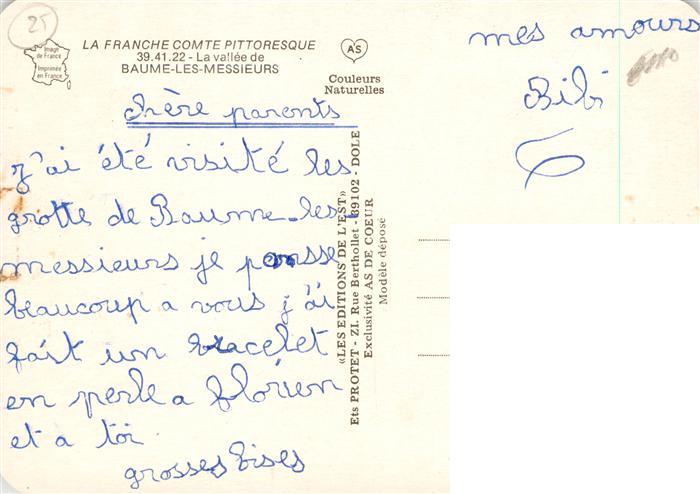 25
Image
de France
Imprimée
en France
LA FRANCHE COMTE PITTORESQUE
39.41.22 - La vallée de
BAUME-LES-MESSIEURS
AS
Couleurs
Naturelles
chère parents
j'ai été visité les
grotte de Baume-les-
messieurs je pensse
beaucoup a vous j'ai
fait un bracelet
en perle a florien
et a toi
grosses bises
mes amours
Bibi
«LES EDITIONS DE L'EST»
Ets PROTET - ZI. Rue Berthollet - 39102 - DOLE
Exclusivité AS DE COEUR
Modèle déposé